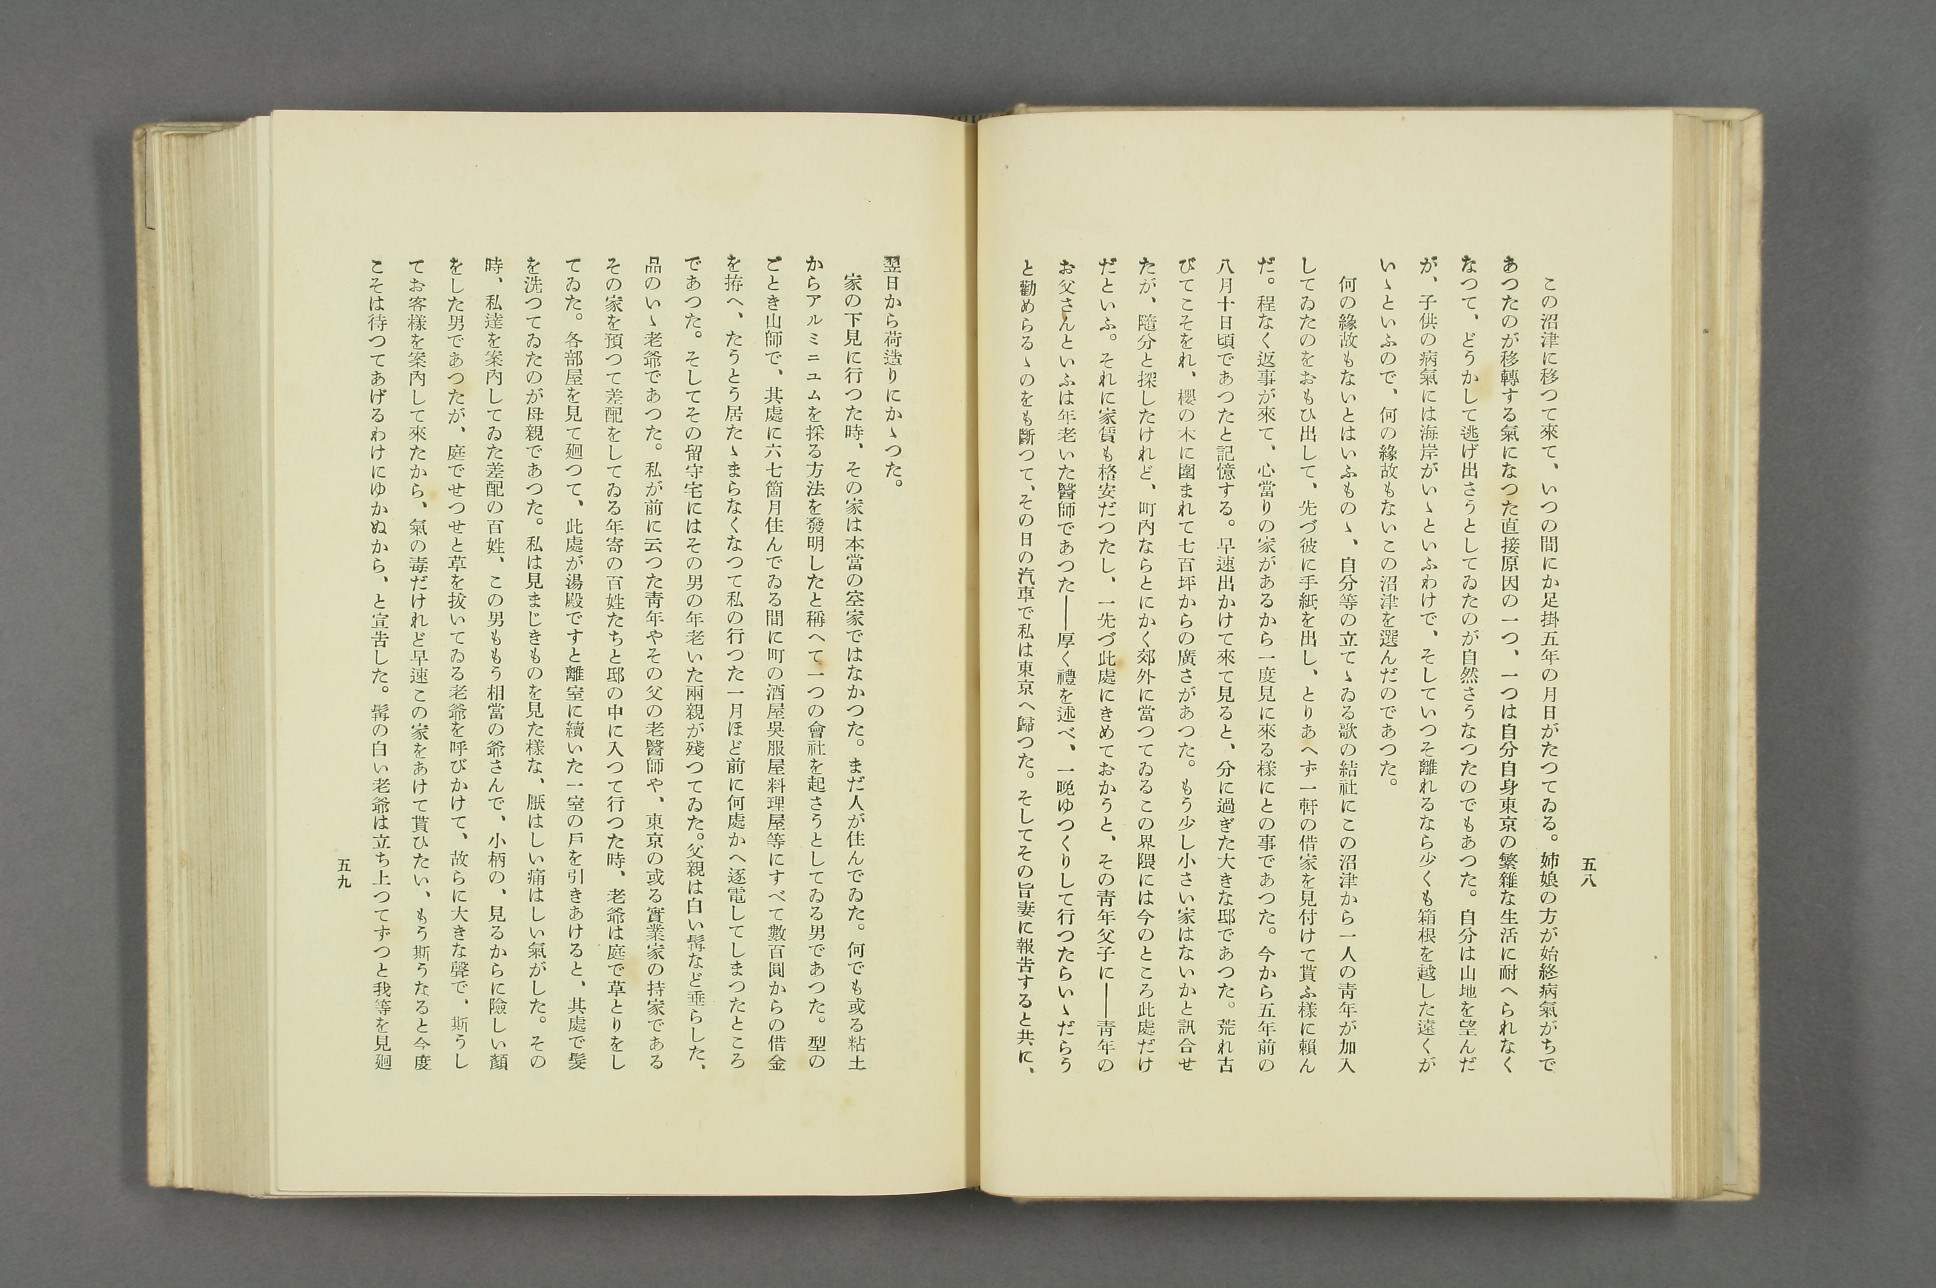 五八
この沼津に移つて來て、いつの間にか足掛五年の月日がたつてゐる。姉娘の方が始終病氣がちで
あつたのが移轉する氣になつた直接原因の一つ、一つは自分自身東京の繁雜な生活に耐へられなく
なつて、どうかして逃げ出さうとしてゐたのが自然さうなつたのでもあつた。自分は山地を望んだ
が、子供の病氣には海岸がいゝといふわけで、そしていつそ離れるなら少くも箱根を越した遠くが
いゝといふので、何の緣故もないこの沼津を選んだのであつた。
何の緣故もないとはいふものゝ、自分等の立てゝゐる歌の結社にこの沼津から一人の靑年が加入
してゐたのをおもひ出して、先づ彼に手紙を出し、とりあへず一軒の借家を見付けて貰ふ樣に賴ん
だ。程なく返事が來て、心當りの家があるから一度見に來る樣にとの事であつた。今から五年前の
八月十日頃であつたと記憶する。早速出かけて來て見ると、分に過ぎた大きな邸であつた。荒れ古
びてこそをれ、櫻の木に圍まれて七百坪からの廣さがあつた。もう少し小さい家はないかと訊合せ
たが、隨分と探したけれど、町內ならとにかく郊外に當つてゐるこの界隈には今のところ此處だけ
だといふ。それに家賃も格安だつたし、一先づ此處にきめておかうと、その靑年父子に――靑年の
お父さんといふは年老いた醫師であつた――厚く禮を述べ、一晩ゆつくりして行つたらいゝだらう
と勸めらるゝのをも斷つて、その日の汽車で私は東京へ歸つた。そしてその旨妻に報吿すると共に、
翌日から荷造りにかゝつた。
家の下見に行つた時、その家は本當の空家ではなかつた。まだ人が住んでゐた。何でも或る粘土
からアルミニユムを採る方法を發明したと稱へて一つの會社を起さうとしてゐる男であつた。型の
ごとき山師で、其處に六七箇月住んでゐる間に町の酒屋吳服屋料理屋等にすべて數百圓からの借金
を拵へ、たうとう居たゝまらなくなつて私の行つた一月ほど前に何處かへ逐電してしまつたところ
であつた。そしてその留守宅にはその男の年老いた兩親が殘つてゐた。父親は白い髯など垂らした、
品のいゝ老爺であつた。私が前に云つた靑年やその父の老醫師や、東京の或る實業家の持家である
その家を預つて差配をしてゐる年寄の百姓たちと邸の中に入つて行つた時、老爺は庭で草とりをし
てゐた。各部屋を見て廻つて、此處が湯殿ですと離室に續いた一室の戶を引きあけると、其處で髮
を洗つてゐたのが母親であつた。私は見まじきものを見た樣な、厭はしい痛はしい氣がした。その
時、私達を案內してゐた差配の百姓、この男ももう相當の爺さんで、小柄の、見るからに險しい顏
をした男であつたが、庭でせつせと草を拔いてゐる老爺を呼びかけて、故らに大きな聲で、斯うし
てお客樣を案內して來たから、氣の毒だけれど早速この家をあけて貰ひたい、もう斯うなると今度
こそは待つてあげるわけにゆかぬから、と宣吿した。髯の白い老爺は立ち上つてずつと我等を見廻
五九